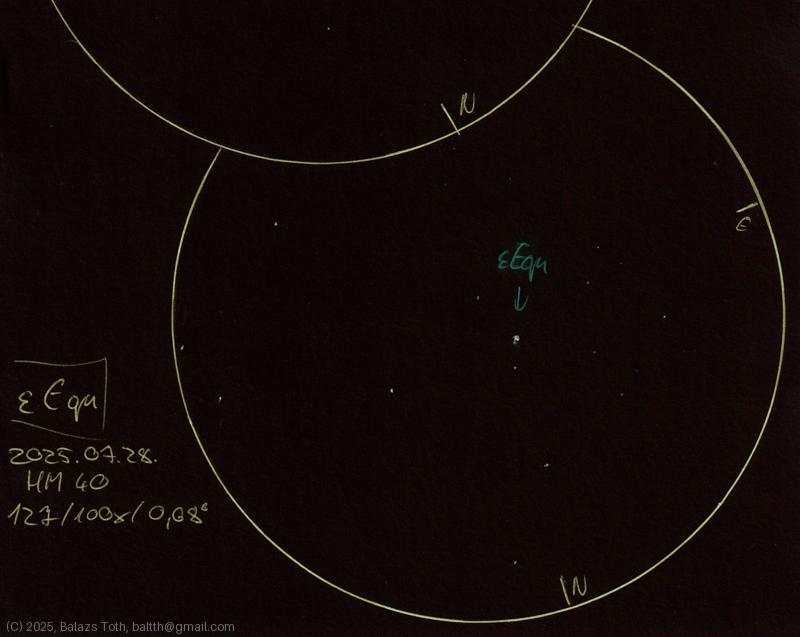 N
E
εEqu
ε Equ
2025.07.28.
HM 40
127/100x/0,68°
N
(C) 2025, Balazs Toth, baltth@gmail.com